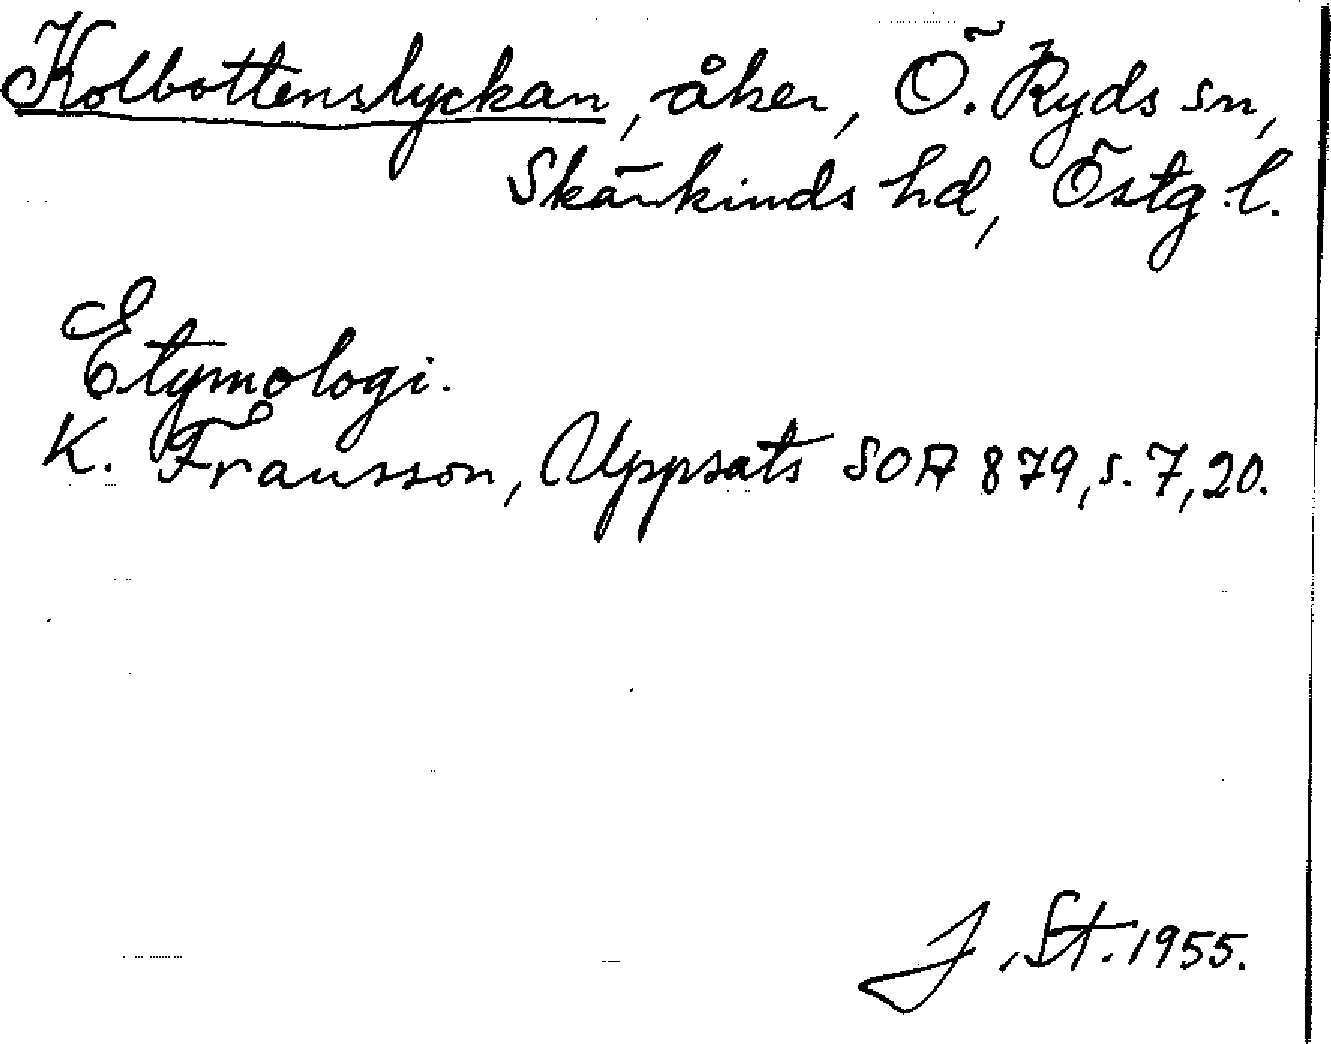 Kolbottenslyckan, åker, Ö. Ryds sn,
Skärkinds hd, Östg. l.
Etymologi.
K. Fransson, Uppsats SOA 879, s. 7, 20.
J. St. 1955.